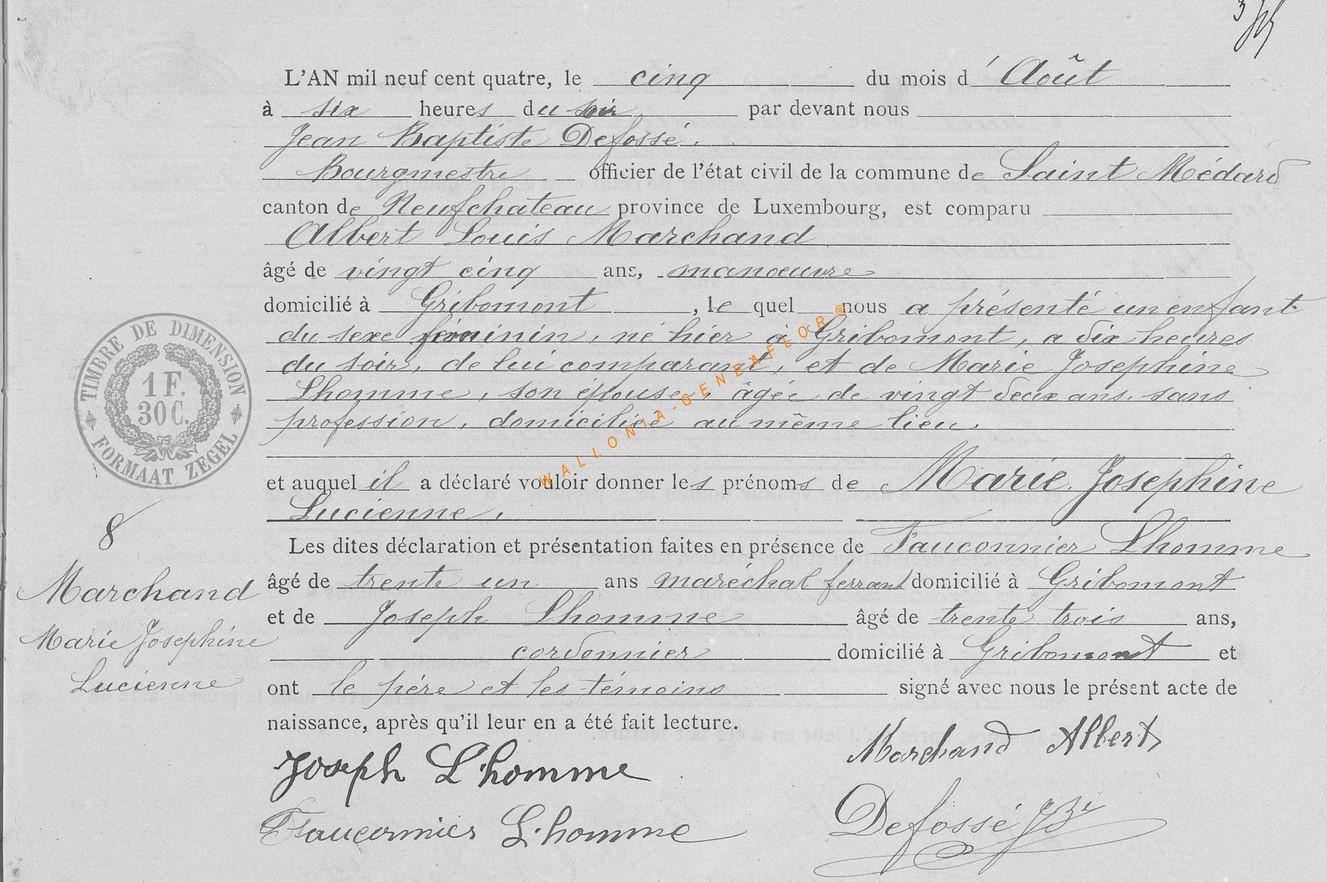 L'AN mil neuf cent quatre, le cinq du mois d'Août
à six heures du soir par devant nous
Jean Baptiste Defossé.
Bourgmestre officier de l'état civil de la commune de Saint Médard
canton de Neufchateau province de Luxembourg, est comparu
Albert Louis Marchand
âgé de vingt cinq ans, manœuvre
domicilié à Gribomont, le quel nous a présenté un enfant
du sexe féminin, né hier à Gribomont, a dix heures
du soir, de lui comparant, et de Marie Josephine
Lhomme, son épouse, âgée de vingt deux ans, sans
profession, domiciliée au même lieu.
et auquel il a déclaré vouloir donner les prénoms de Marie Josephine
Lucienne.
Les dites déclaration et présentation faites en présence de Fauconnier Lhomme
âgé de trente un ans maréchal ferrant domicilié à Gribomont
et de Joseph Lhomme âgé de trente trois ans,
cordonnier domicilié à Gribomont et
ont le père et les témoins signé avec nous le présent acte de
naissance, après qu'il leur en a été fait lecture.
Marchand Albert
Joseph L'homme
Fauconnier L'homme
Defossé JBte
TIMBRE DE DIMENSION
1 F.
30 C.
FORMAAT ZEGEL
8
Marchand
Marie Josephine
Lucienne
WALLONIA-GENEAFLOR®